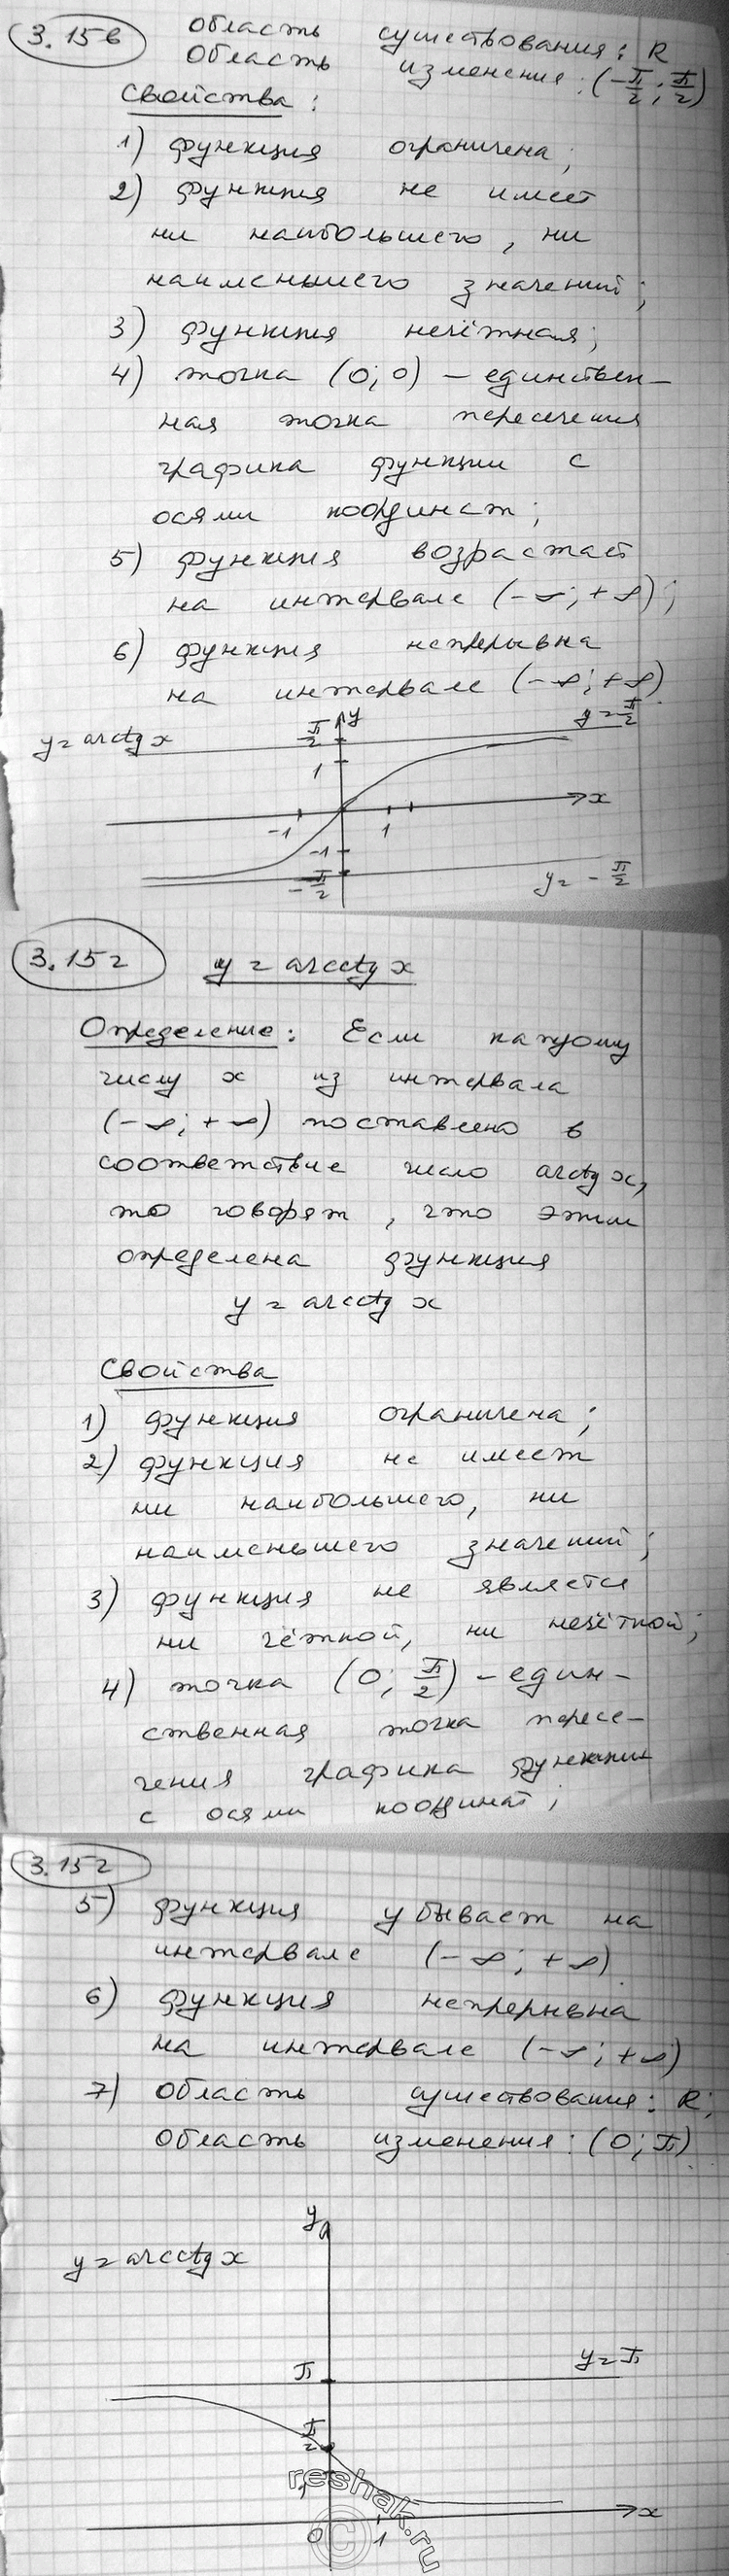 3.15в
область существования: R
область изменения: (-π/2; π/2)
Свойства:
1) функция ограничена;
2) функция не имеет
ни наибольшего, ни
наименьшего значений;
3) функция нечётная;
4) точка (0; 0) – единствен-
ная точка пересечения
графика функции с
осями координат;
5) функция возрастает
на интервале (-∞; +∞);
6) функция непрерывна
на интервале (-∞; +∞)
y = arctg x
π/2
y
y = π/2
1
x
-1
1
-1
-π/2
y = -π/2
3.15г
y = arcctg x
Определение: Если каждому
числу x из интервала
(-∞; +∞) поставлено в
соответствие число arcctg x,
то говорят, что этим
определена функция
y = arcctg x
Свойства
1) функция ограничена;
2) функция не имеет
ни наибольшего, ни
наименьшего значений;
3) функция не является
ни чётной, ни нечётной;
4) точка (0; π/2) – един-
ственная точка пересе-
чения графика функции
с осями координат;
3.15г
5) функция убывает на
интервале (-∞; +∞)
6) функция непрерывна
на интервале (-∞; +∞)
7) область существования: R;
область изменения: (0; π)
y
y = arcctg x
π
y = π
π/2
1
x
0
1
reshak.ru
©